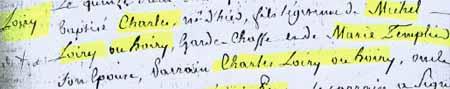 Loiry Baptisé Charles, né d'hier, fils légitime de Michel
Loiry ou hoiry, Garde Chasse et de Marie Templier
Son Epouse, Parrain Charles Loiry ou hoiry, oncle